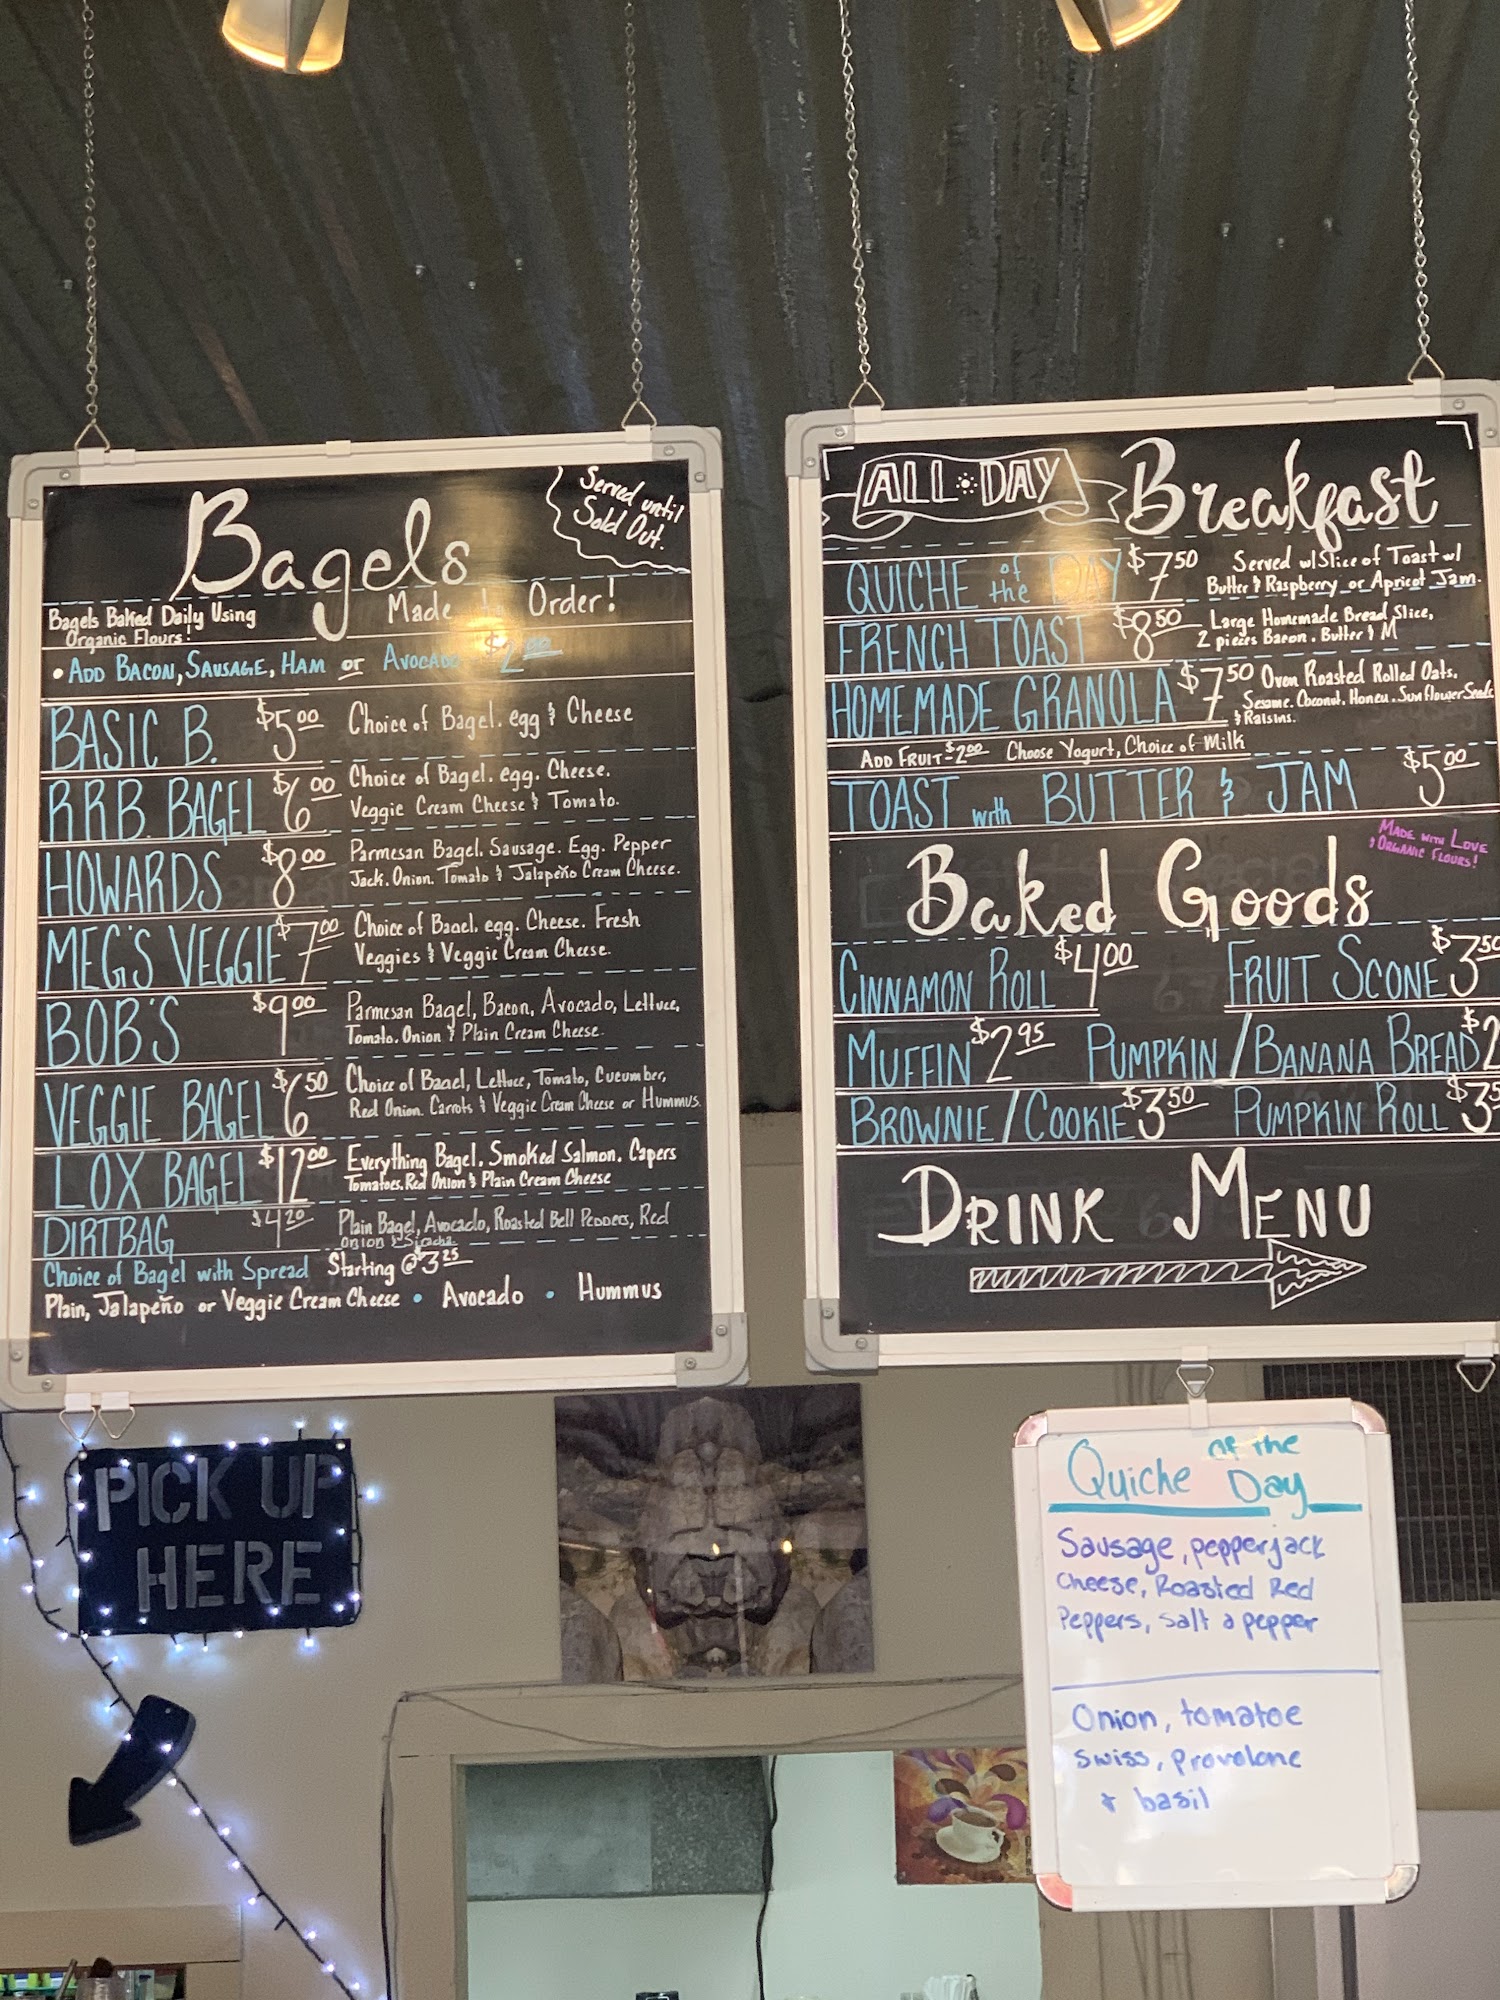 Bagels
Served until
Sold Out.
Bagels Baked Daily Using
Organic Flours!
Made to Order!
• ADD BACON, SAUSAGE, HAM or AVOCADO $2.00
BASIC B. $5.00 Choice of Bagel. egg & Cheese
RRB. BAGEL $6.00 Choice of Bagel. egg. Cheese.
Veggie Cream Cheese & Tomato.
HOWARDS $8.00 Parmesan Bagel. Sausage. Egg. Pepper
Jack. Onion. Tomato & Jalapeño Cream Cheese.
MEG'S VEGGIE $7.00 Choice of Bagel. egg. Cheese. Fresh
Veggies & Veggie Cream Cheese.
BOB'S $9.00 Parmesan Bagel, Bacon, Avocado, Lettuce,
Tomato. Onion & Plain Cream Cheese.
VEGGIE BAGEL $6.50 Choice of Bagel, Lettuce, Tomato, Cucumber,
Red Onion. Carrots & Veggie Cream Cheese or Hummus.
LOX BAGEL $12.00 Everything Bagel. Smoked Salmon. Capers
Tomatoes. Red Onion & Plain Cream Cheese
DIRTBAG $4.20 Plain Bagel, Avocado, Roasted Bell Peppers, Red
Onion & Siracha
Choice of Bagel with Spread Starting @ $3.25
Plain, Jalapeño or Veggie Cream Cheese • Avocado • Hummus
ALL DAY Breakfast
QUICHE of the DAY $7.50 Served w/Slice of Toast w/
Butter & Raspberry or Apricot Jam.
FRENCH TOAST $8.50 Large Homemade Bread Slice,
2 pieces Bacon. Butter & M
HOMEMADE GRANOLA $7.50 Oven Roasted Rolled Oats.
Sesame. Coconut. Honey. Sunflower Seeds
& Raisins.
ADD FRUIT - $2.00 Choose Yogurt, Choice of Milk
TOAST with BUTTER & JAM $5.00
MADE WITH LOVE
& ORGANIC FLOURS!
Baked Goods
CINNAMON ROLL $4.00 FRUIT SCONE $3.50
MUFFIN $2.95 PUMPKIN / BANANA BREAD $2
BROWNIE / COOKIE $3.50 PUMPKIN ROLL $3.5
DRINK MENU
PICK UP
HERE
Quiche of the
Day
Sausage, pepperjack
Cheese, Roasted Red
Peppers, salt & pepper
Onion, tomatoe
swiss, provolone
& basil